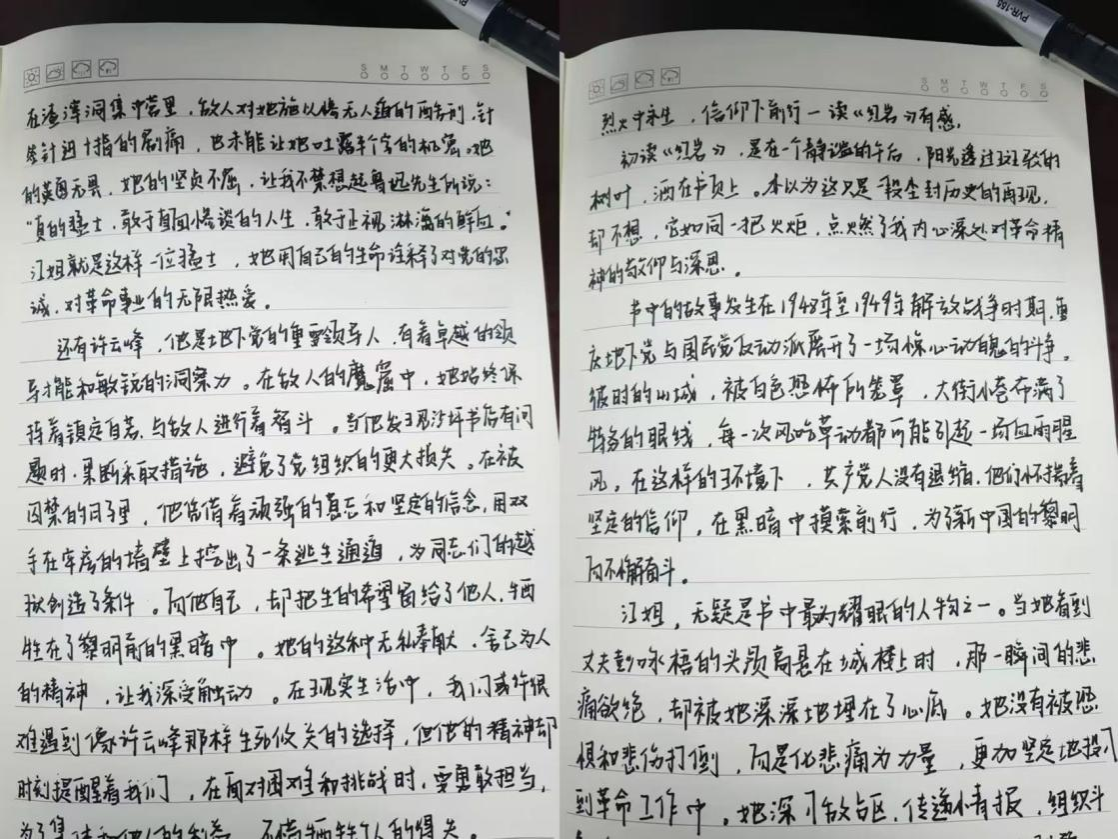 S M T W T F S
在渣滓洞集中营里，敌人对她施以惨无人道的酷刑，竹
签钉进十指的剧痛，也未能让她吐露半个字的机密。她
的英勇无畏，她的坚贞不屈，让我不禁想起鲁迅先生所说：
“真的猛士，敢于直面惨淡的人生，敢于正视淋漓的鲜血。”
江姐就是这样一位猛士，她用自己的生命诠释了对党的忠
诚，对革命事业的无限热爱。
还有许云峰，他是地下党的重要领导人，有着卓越的领
导才能和敏锐的洞察力。在敌人的魔窟中，她始终保
持着镇定自若，与敌人进行着智斗。当他发现沙坪书店有问
题时，果断采取措施，避免了党组织的更大损失。在被
囚禁的日子里，他凭借着顽强的意志和坚定的信念，用双
手在牢房的墙壁上挖出了一条逃生通道，为同志们的越
狱创造了条件。而他自己，却把生的希望留给了他人，牺
牲在了黎明前的黑暗中。她的这种无私奉献，舍己为人
的精神，让我深受触动。在现实生活中，我们或许很
难遇到像许云峰那样生死攸关的选择，但他的精神却
时刻提醒着我们，在面对困难和挑战时，要勇敢担当，
为了集体和他人的利益，不惜牺牲个人的得失。
PVR-155
S M T W T F S
烈火中永生，信仰下前行—读《红岩》有感，
初读《红岩》，是在一个静谧的午后，阳光透过斑驳的
树叶，洒在书页上。本以为这只是一段尘封历史的再现，
却不想，它如同一把火炬，点燃了我内心深处对革命精
神的敬仰与深思。
书中的故事发生在1948年至1949年解放战争时期，重
庆地下党与国民党反动派展开了一场惊心动魄的斗争。
彼时的山城，被白色恐怖所笼罩，大街小巷布满了
特务的眼线，每一次风吹草动都可能引起一场血雨腥
风。在这样的环境下，共产党人没有退缩，他们怀揣着
坚定的信仰，在黑暗中摸索前行，为了新中国的黎明
而不懈奋斗。
江姐，无疑是书中最为耀眼的人物之一。当她看到
丈夫彭咏梧的头颅高悬在城楼上时，那一瞬间的悲
痛欲绝，却被她深深地埋在了心底。她没有被恐
惧和悲伤打倒，而是化悲痛为力量，更加坚定地投入
到革命工作中。她深入敌占区，传递情报，组织斗